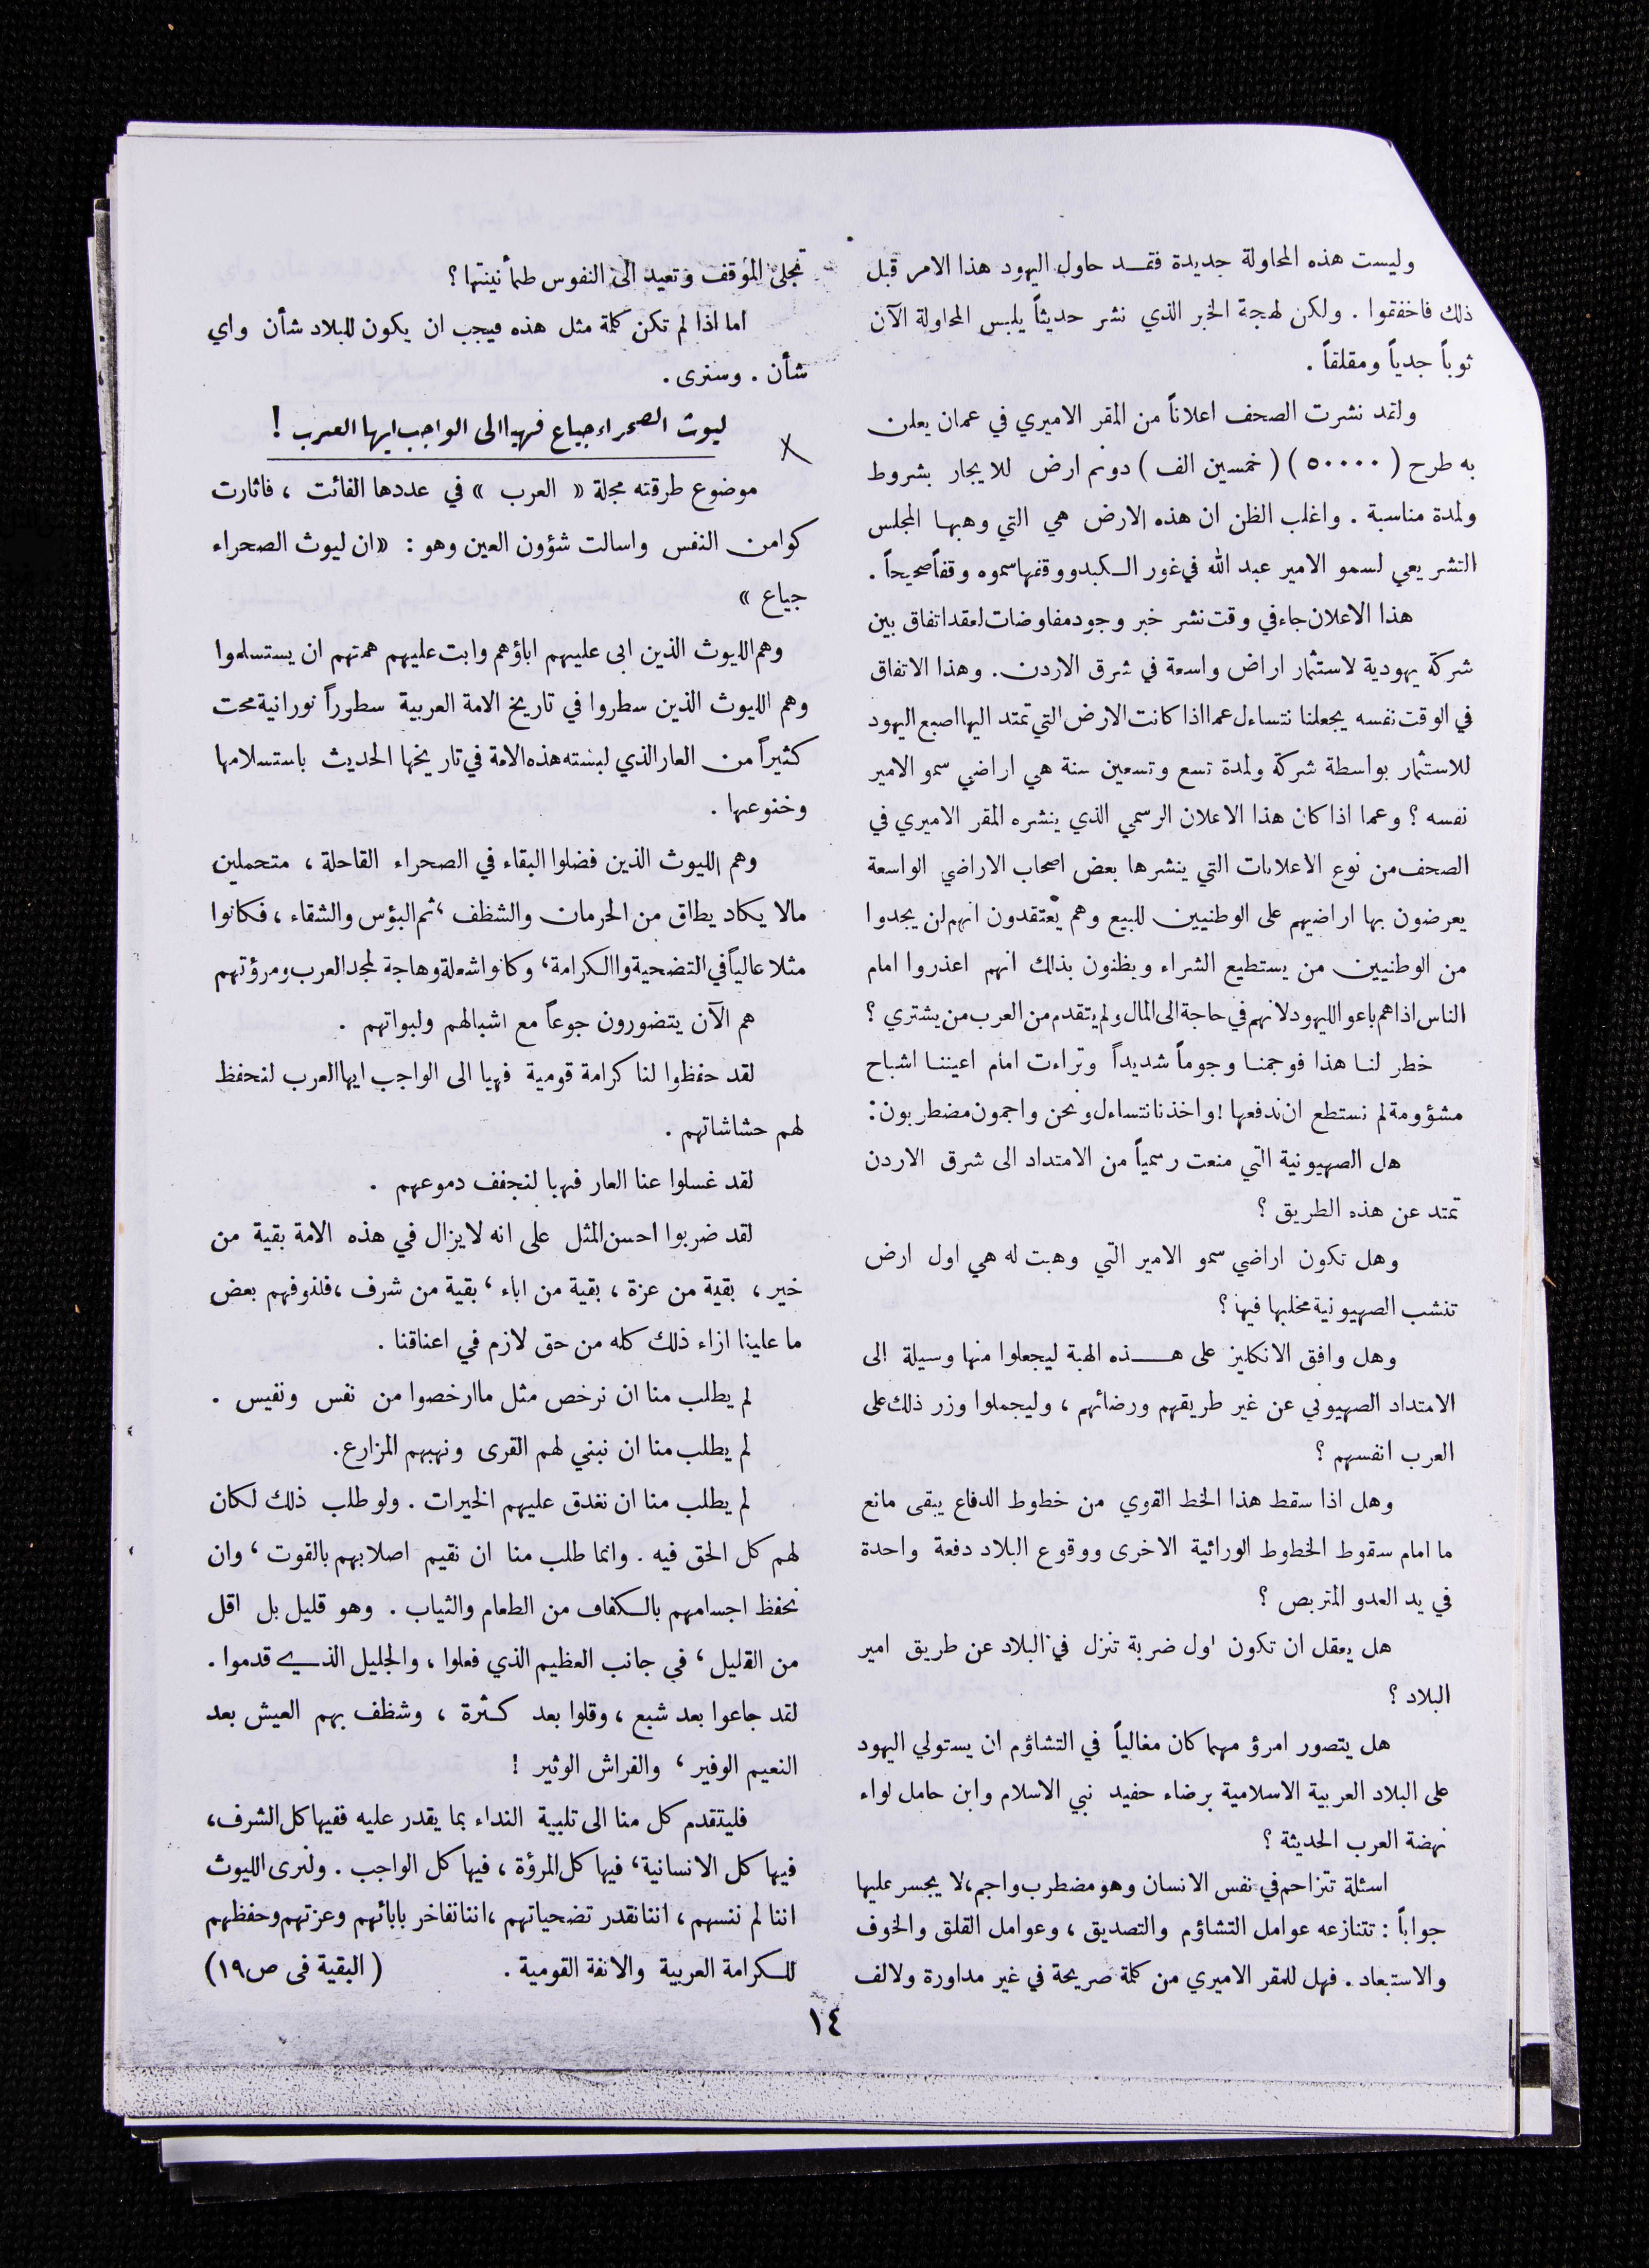 وليست هذه المحاولة جديدة فقد حاول اليهود هذا الامر قبل
ذلك فاخفقوا . ولكن لهجة الخبر الذي نشر حديثاً يلبس المحاولة الآن
ثوباً جدياً ومقلقاً .
ولقد نشرت الصحف اعلاناً من المقر الاميري في عمان يعلن
به طرح ( ٥٠٠٠٠ ) ( خمسين الف ) دونم ارض للايجار بشروط
ولمدة مناسبة . واغلب الظن ان هذه الارض هي التي وهبها المجلس
التشريعي لسمو الامير عبد الله في غور الكبد ووقفها سموه وقفاً صحيحاً .
هذا الاعلان جاء في وقت نشر خبر وجود مفاوضات لعقد اتفاق بين
شركة يهودية لاستثمار اراض واسعة في شرق الاردن . وهذا الاتفاق
في الوقت نفسه يجعلنا نتساءل عما اذا كانت الارض التي تمتد اليها اصبع اليهود
للاستثمار بواسطة شركة ولمدة تسع وتسعين سنة هي اراضي سمو الامير
نفسه ؟ وعما اذا كان هذا الاعلان الرسمي الذي ينشره المقر الاميري في
الصحف من نوع الاعلانات التي ينشرها بعض اصحاب الاراضي الواسعة
يعرضون بها اراضيهم على الوطنيين للبيع وهم يعتقدون انهم لن يجدوا
من الوطنيين من يستطيع الشراء ويظنون بذلك انهم اعذروا امام
الناس اذا هم باعوا لليهود لانهم في حاجة الى المال ولم يتقدم من العرب من يشتري ؟
خطر لنا هذا فوجمنا وجوماً شديداً وتراءت امام اعيننا اشباح
مشؤومة لم نستطع ان ندفعها ! واخذنا نتساءل ونحن واجمون مضطربون :
هل الصهيونية التي منعت رسمياً من الامتداد الى شرق الاردن
تمتد عن هذه الطريق ؟
وهل تكون اراضي سمو الامير التي وهبت له هي اول ارض
تنشب الصهيونية مخلبها فيها ؟
وهل وافق الانكليز على هـــذه الهبة ليجعلوا منها وسيلة الى
الامتداد الصهيوني عن غير طريقهم ورضائهم ، وليجعلوا وزر ذلك على
العرب انفسهم ؟
وهل اذا سقط هذا الخط القوي من خطوط الدفاع يبقى مانع
ما امام سقوط الخطوط الورائية الاخرى ووقوع البلاد دفعة واحدة
في يد العدو المتربص ؟
هل يعقل ان تكون اول ضربة تنزل في البلاد عن طريق امير
البلاد ؟
هل يتصور امرؤ مهما كان مغالياً في التشاؤم ان يستولي اليهود
على البلاد العربية الاسلامية برضاء حفيد نبي الاسلام وابن حامل لواء
نهضة العرب الحديثة ؟
اسئلة تتزاحم في نفس الانسان وهو مضطرب واجم ، لا يجسر عليها
جواباً : تتنازعه عوامل التشاؤم والتصديق ، وعوامل القلق والخوف
والاستبعاد . فهل للمقر الاميري من كلمة صريحة في غير مداورة ولا لف
تجلى الموقف وتعيد الى النفوس طمأنينتها ؟
اما اذا لم تكن كلمة مثل هذه فيجب ان يكون للبلاد شأن واي
شأن . وسنرى .
ليوث الصحراء جياع فهيا الى الواجب ايها العرب !
موضوع طرقته مجلة « العرب » في عددها الفائت ، فاثارت
كوامن النفس واسالت شؤون العين وهو : « ان ليوث الصحراء
جياع »
وهم الليوث الذين ابى عليهم اباؤهم وابت عليهم همتهم ان يستسلموا
وهم الليوث الذين سطروا في تاريخ الامة العربية سطوراً نورانية محت
كثيراً من العار الذي لبسته هذه الامة في تاريخها الحديث باستسلامها
وخنوعها .
وهم الليوث الذين فضلوا البقاء في الصحراء القاحلة ، متحملين
مالا يكاد يطاق من الحرمان والشظف ، ثم البؤس والشقاء ، فكانوا
مثلا عالياً في التضحية والكرامة ، وكانوا شعلة وهاجة لمجد العرب ومرؤتهم
هم الآن يتضورون جوعاً مع اشبالهم ولبواتهم .
لقد حفظوا لنا كرامة قومية فهيا الى الواجب ايها العرب لنحفظ
لهم حشاشاتهم .
لقد غسلوا عنا العار فهيا لنجفف دموعهم .
لقد ضربوا احسن المثل على انه لا يزال في هذه الامة بقية من
خير ، بقية من عزة ، بقية من اباء ، بقية من شرف ، فلنوفهم بعض
ما علينا ازاء ذلك كله من حق لازم في اعناقنا .
لم يطلب منا ان نرخص مثل ما ارخصوا من نفس ونفيس .
لم يطلب منا ان نبني لهم القرى ونهبهم المزارع .
لم يطلب منا ان نغدق عليهم الخيرات . ولو طلب ذلك لكان
لهم كل الحق فيه . وانما طلب منا ان نقيم اصلابهم بالقوت ، وان
نحفظ اجسامهم بالكفاف من الطعام والثياب . وهو قليل بل اقل
من القليل ، في جانب العظيم الذي فعلوا ، والجليل الذي قدموا .
لقد جاعوا بعد شبع ، وقلوا بعد كثرة ، وشظف بهم العيش بعد
النعيم الوفير ، والفراش الوثير !
فليتقدم كل منا الى تلبية النداء بما يقدر عليه ففيها كل الشرف ،
فيها كل الانسانية ، فيها كل المرؤة ، فيها كل الواجب . ولنرى الليوث
اننا لم ننسهم ، اننا نقدر تضحياتهم ، اننا نفاخر بابائهم وعزتهم وحفظهم
للكرامة العربية والانفة القومية . ( البقية في ص ١٩ )
١٤